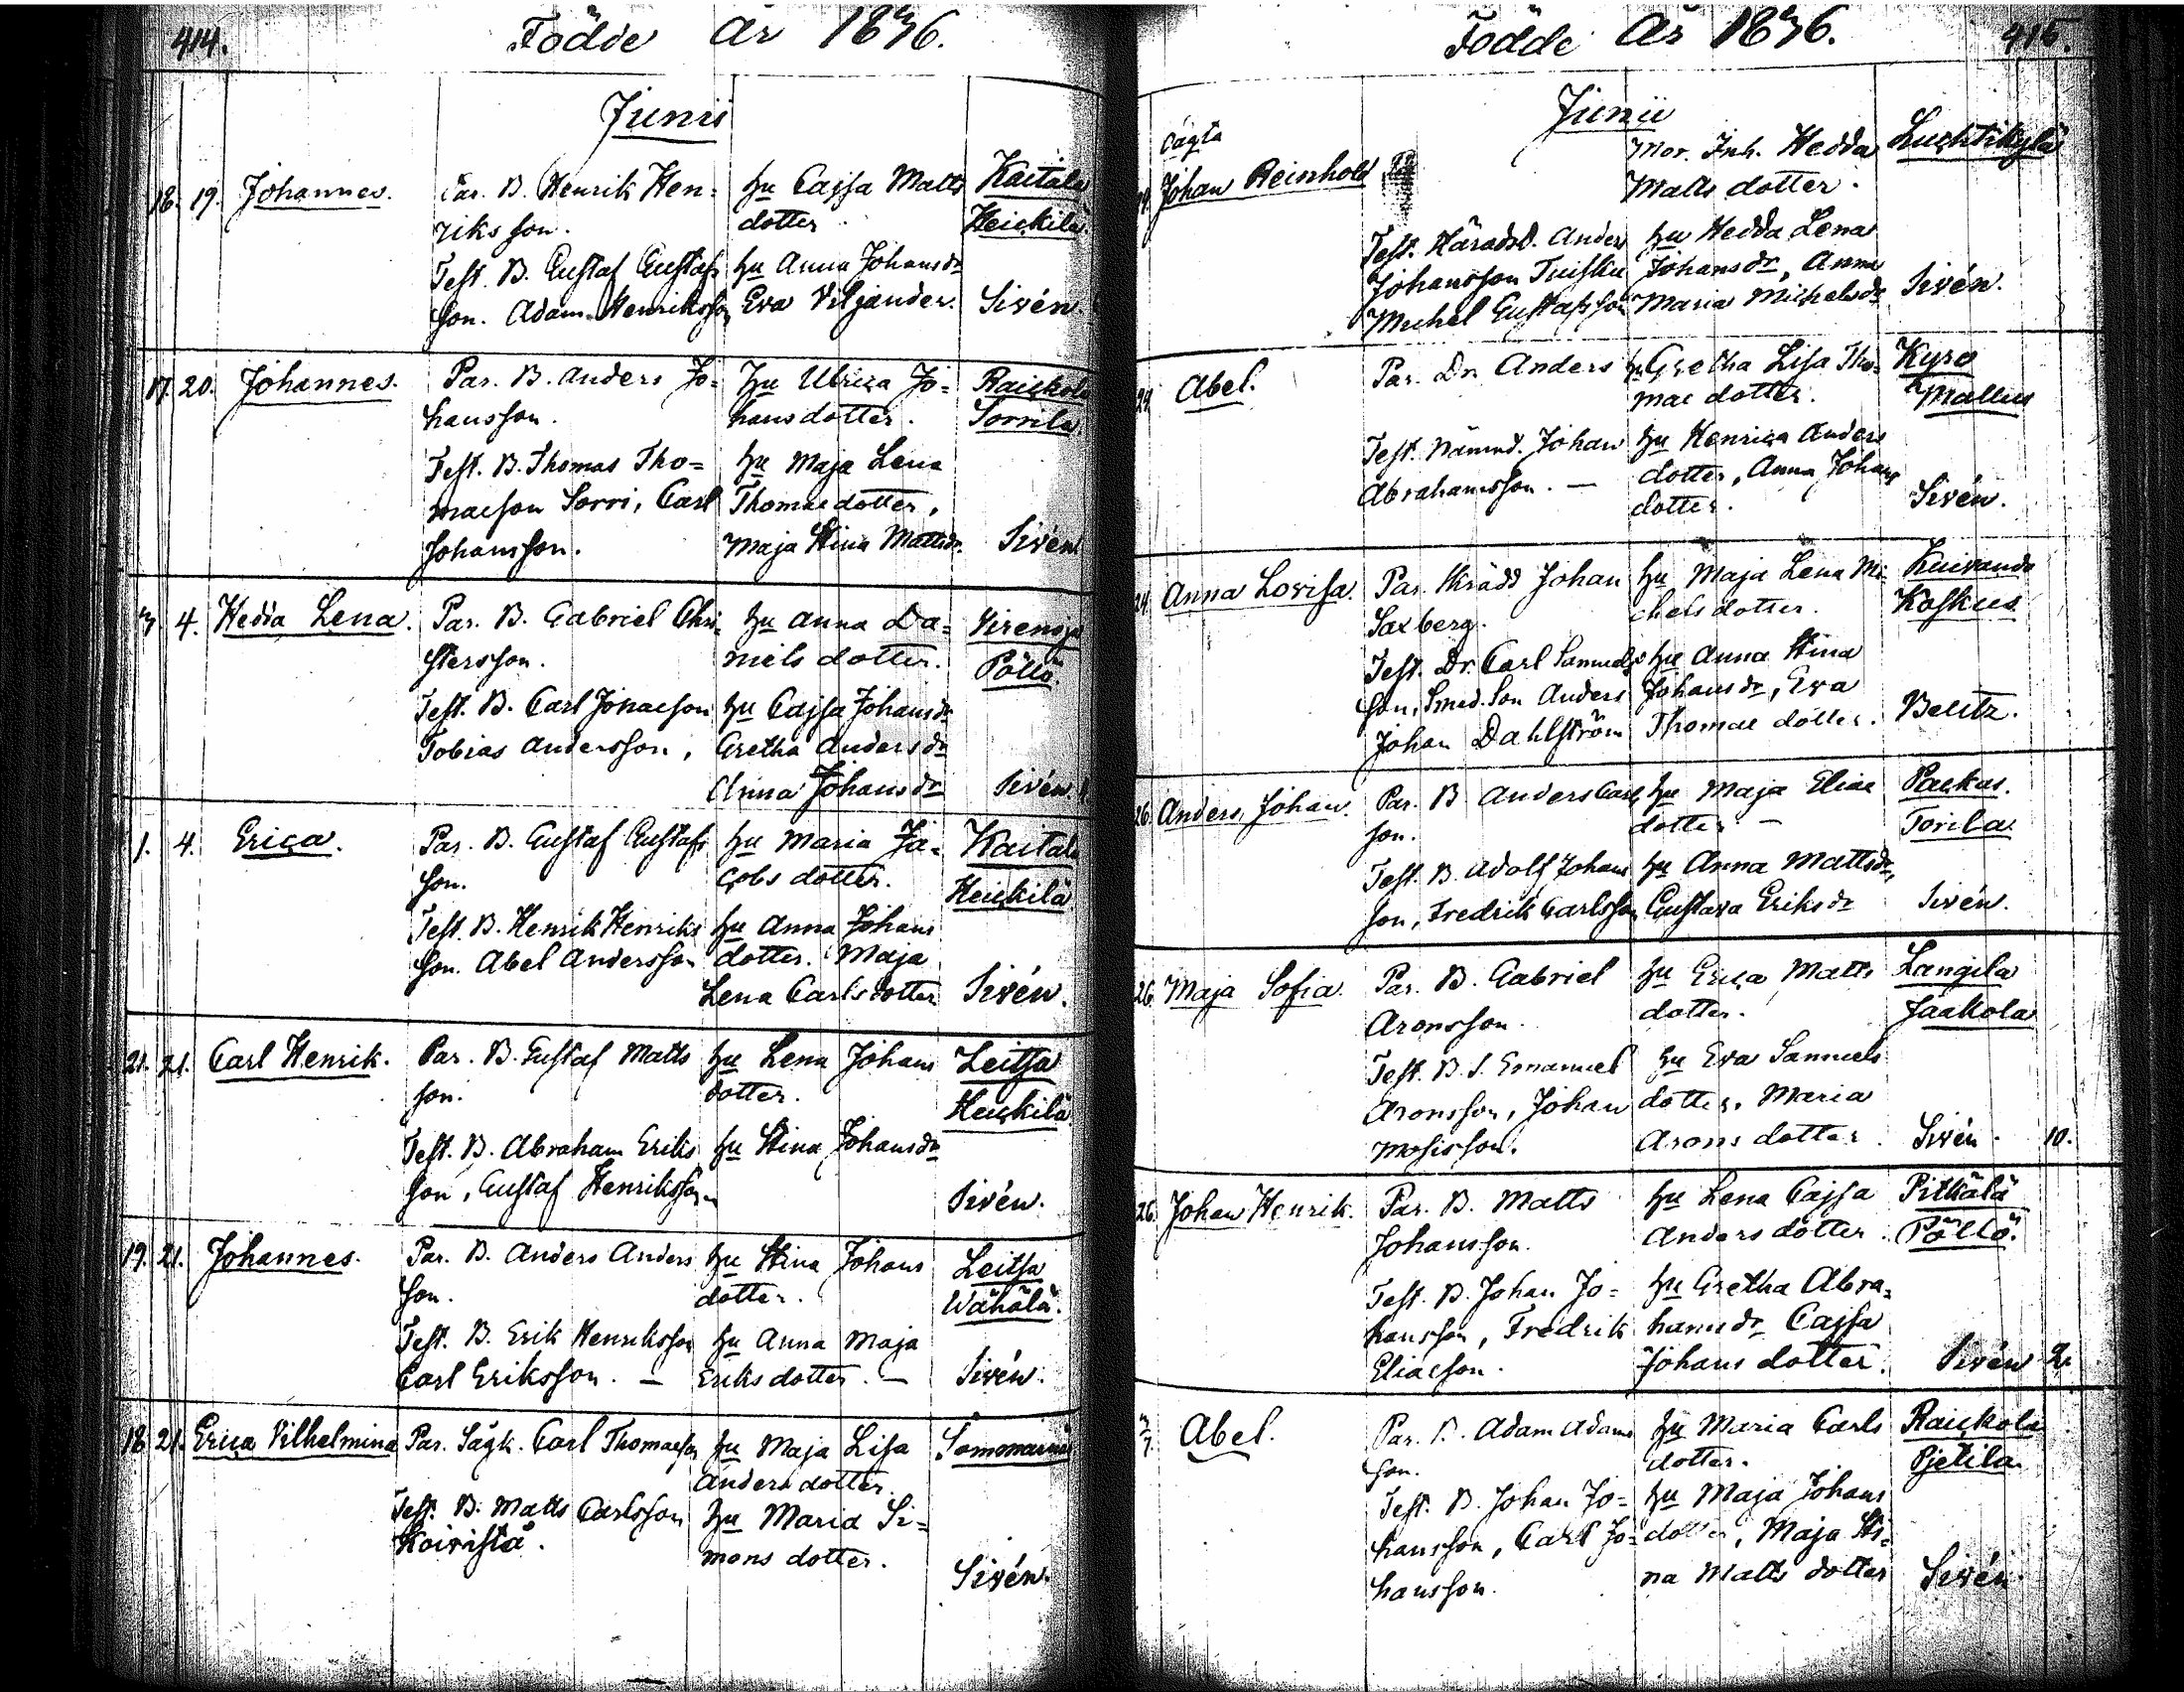 414.
Födde år 1836.
Junii
18. 19. Johannes. Par. B. Henrik Hen= hu Cajsa Matts Kaitala
riksson. dotter Heickilä
Test. B. Gustaf Gustafs hu Anna Johansdr
son. Adam Henriksson Eva Viljander. Sivén.
17. 20. Johannes. Par. B. Anders Jo= hu Ulrica Jo= Raickola
hansson. hansdotter. Sorrila
Test. B. Thomas Tho= hu Maja Lena
maeson Sorri, Carl Thomaedotter,
Johansson. Maja Stina Mattsdr. Sivén
4. Hedda Lena. Par. B. Gabriel Chri- hu Anna Da= Virenoja
stersson. niels dotter. Pöllö.
Test. B. Carl Jonaeson hu Cajsa Johansdr
Tobias Andersson, Gretha Andersdr
Anna Johansdr Sivén.
1. 4. Erica. Par. B. Gustaf Gustafs hu Maria Ja= Kaitala
son. cobs dotter. Heickilä
Test. B. Henrik Henriks hu Anna Johans
son. Abel Andersson dotter. Maja
Lena Carlsdotter Sivén.
21. 21. Carl Henrik. Par. B. Gustaf Matts hu Lena Johans Leitsa
son. dotter. Heickilä
Test. B. Abraham Eriks hu Stina Johansdr
son, Gustaf Henriksson Sivén.
19. 21. Johannes. Par. B. Anders Anders hu Stina Johans Leitsa
son. dotter. Wähälä.
Test. B. Erik Henriksson hu Anna Maja
Carl Eriksson. — Eriks dotter. — Sivén.
18 21. Erica Vilhelmina Par. Sågk. Carl Thomaeson hu Maja Lisa Sammarnås
Anders dotter.
Test. B. Matts Carlsson hu Maria Si=
Koivisto. mons dotter.
Sivén.
415.
Födde år 1836.
Junii
oägta Mor. Inh. Hedda Luchtikylä
Johan Reinhold Matts dotter.
Test. Häradsd. Anders hu Hedda Lena
Johansson Tuisku Johansdr, Anna
Michel Gustafsson Maria Michelsdr Sivén.
24. Abel. Par. Dr. Anders hu Gretha Lisa Tho- Kyrö
mae dotter. Mallus
Test. Nämnd. Johan hu Henrica Anders
Abrahamsson. — dotter, Anna Johans
dotter. Sivén.
24. Anna Lovisa. Par. Skrädd Johan hu Maja Lena Mi- Kuivando
Saxberg. chelsdotter. Koskus
Test. Dr. Carl Samuels hu Anna Stina
son, Smed. Son Anders Johansdr, Eva
Johan Dahlström Thomae dotter. Belitz.
26. Anders Johan. Par. B Anders Carls hu Maja Eliae Packas.
son. dotter — Torila
Test. B. Adolf Johans hu Anna Mattsdr,
son, Fredrik Carlsson Gustava Eriksdr Sivén.
26. Maja Sofia. Par. B. Gabriel hu Erica Matts Langila
Aronsson. dotter. Jaakola
Test. B. S. Emanuel hu Eva Samuels
Aronsson, Johan dotter, Maria
Mosisson. Arons dotter Sivén. 10.
26. Johan Henrik. Par. B. Matts hu Lena Cajsa Pitkälä
Johansson. Anders dotter. Pöllö.
Test. B. Johan Jo= hu Gretha Abra=
hansson, Fredrik hamsdr Cajsa
Eliaeson. Johans dotter. Sivén 2.
Abel. Par. B. Adam Adams hu Maria Carls Raickola
son. dotter. Pjetila.
Test. B. Johan Jo= hu Maja Johans
hansson, Carl Jo= dotter, Maja Sti=
hansson. na Matts dotter Sivén